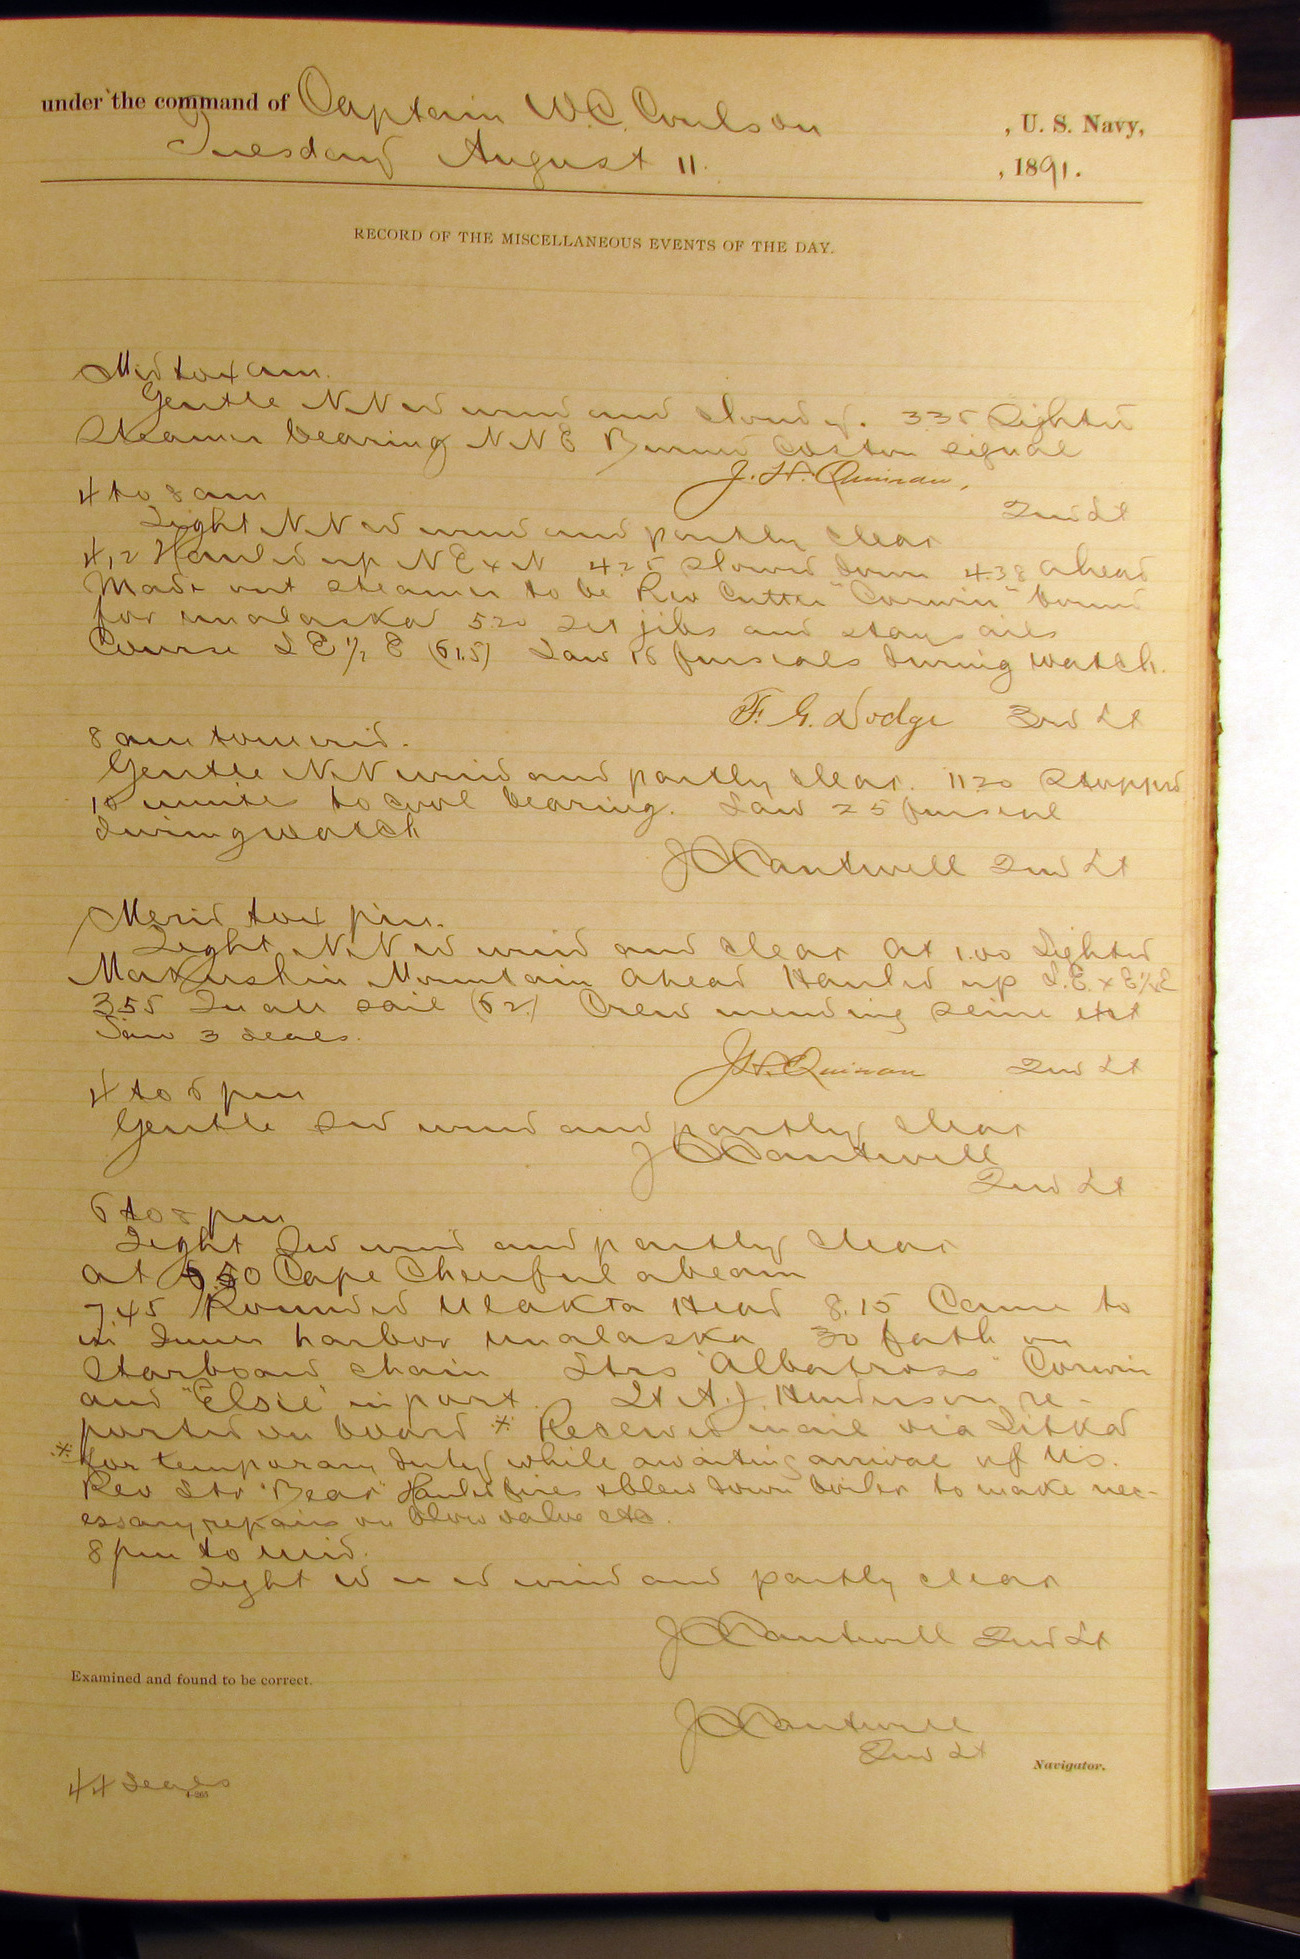 under the command of Captain W.C. Coulson , U. S. Navy,
Tuesday August 11. , 1891.
RECORD OF THE MISCELLANEOUS EVENTS OF THE DAY.
Mid to 4 am.
Gentle N.N'W wind and cloudy. 3.35 Sighted
Steamer bearing N N E Burned Coston signal
J. H. Quinan,
2nd Lt
4 to 8 am
Light N.N'W wind and partly clear
4,12 Hauled up N E x N 4.25 Slowed down 4.38 ahead
Made out steamer to be Rev Cutter "Corwin" bound
for unalaska 5.20 Set jibs and staysails
Course S E 1/2 E (61.5) Saw 16 furseals during watch.
F. G. Dodge 3rd Lt
8 am to merid.
Gentle N.N wind and partly clear. 11.20 Stopped
10 minutes to cool bearing. Saw 25 furseal
during watch
JCCantwell 2nd Lt
Merid to 4 pm.
Light N.N'W wind and clear At 1.00 Sighted
Makushin Mountain ahead Hauled up S.E x E 1/2 E
3.55 In all sail (62.) Crew mending seine etct
Saw 3 seals.
J.H.Quinan 2nd Lt
4 to 6 pm
Gentle SW wind and partly clear
JCCantwell
2nd Lt
6 to 8 pm
Light SW wind and partly clear
At 5.50 Cape Cheerful abeam
7.45 Rounded Ulakta Head 8.15 Came to
in Inner harbor unalaska 30 fath on
Starboard chain Strs "Albatross" Corwin
and "Elsie" in port. Lt A.J. Henderson re-
ported on board * Received mail via Sitka
* for temporary duty while awaiting arrival of U.S.
Rev Str "Bear" Hauled fires & blew down boiler to make nec-
essary repairs on blow valve etc.
8 pm to mid.
Light W'N'W wind and partly clear
JCCantwell 2nd Lt
Examined and found to be correct.
JCCantwell
2nd Lt
Navigator.
44 Seals
4-265